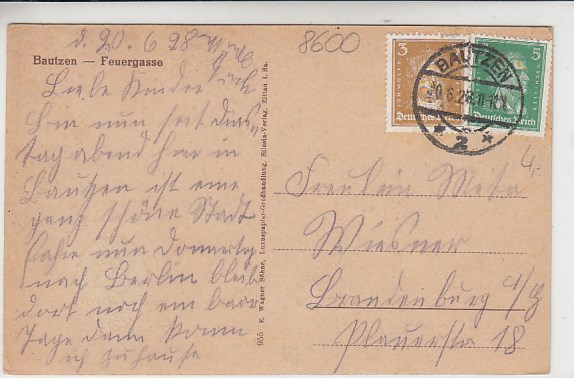 d. 20. 6 28
8600
Bautzen — Feuergasse
Liebe Kinder
bin nun seit Diens-
tag abend hier in
Bautzen ist eine
ganz schöne Stadt
fahre nun Donnerstg
nach Berlin bleib
dort noch ein baar
Tage dann komm
ich zuhause
955 E. Wagner Söhne, Luxuspapier-Großhandlung, Süesda-Verlag, Zittau i. Sa.
3
5
Deutsches Reich
Deutsches Reich
BAUTZEN
2
4,-
Freulein Meta
Wiesner
Brandenburg a/H
Plauerstr 18